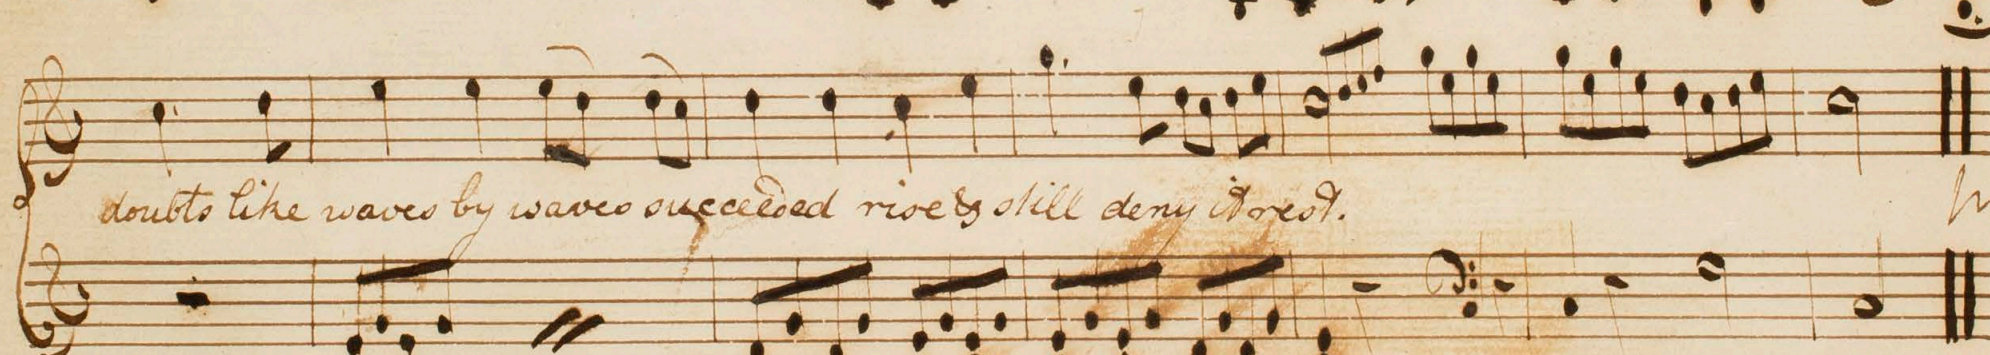 doubts like waves by waves succeeded rise & still deny it rest.